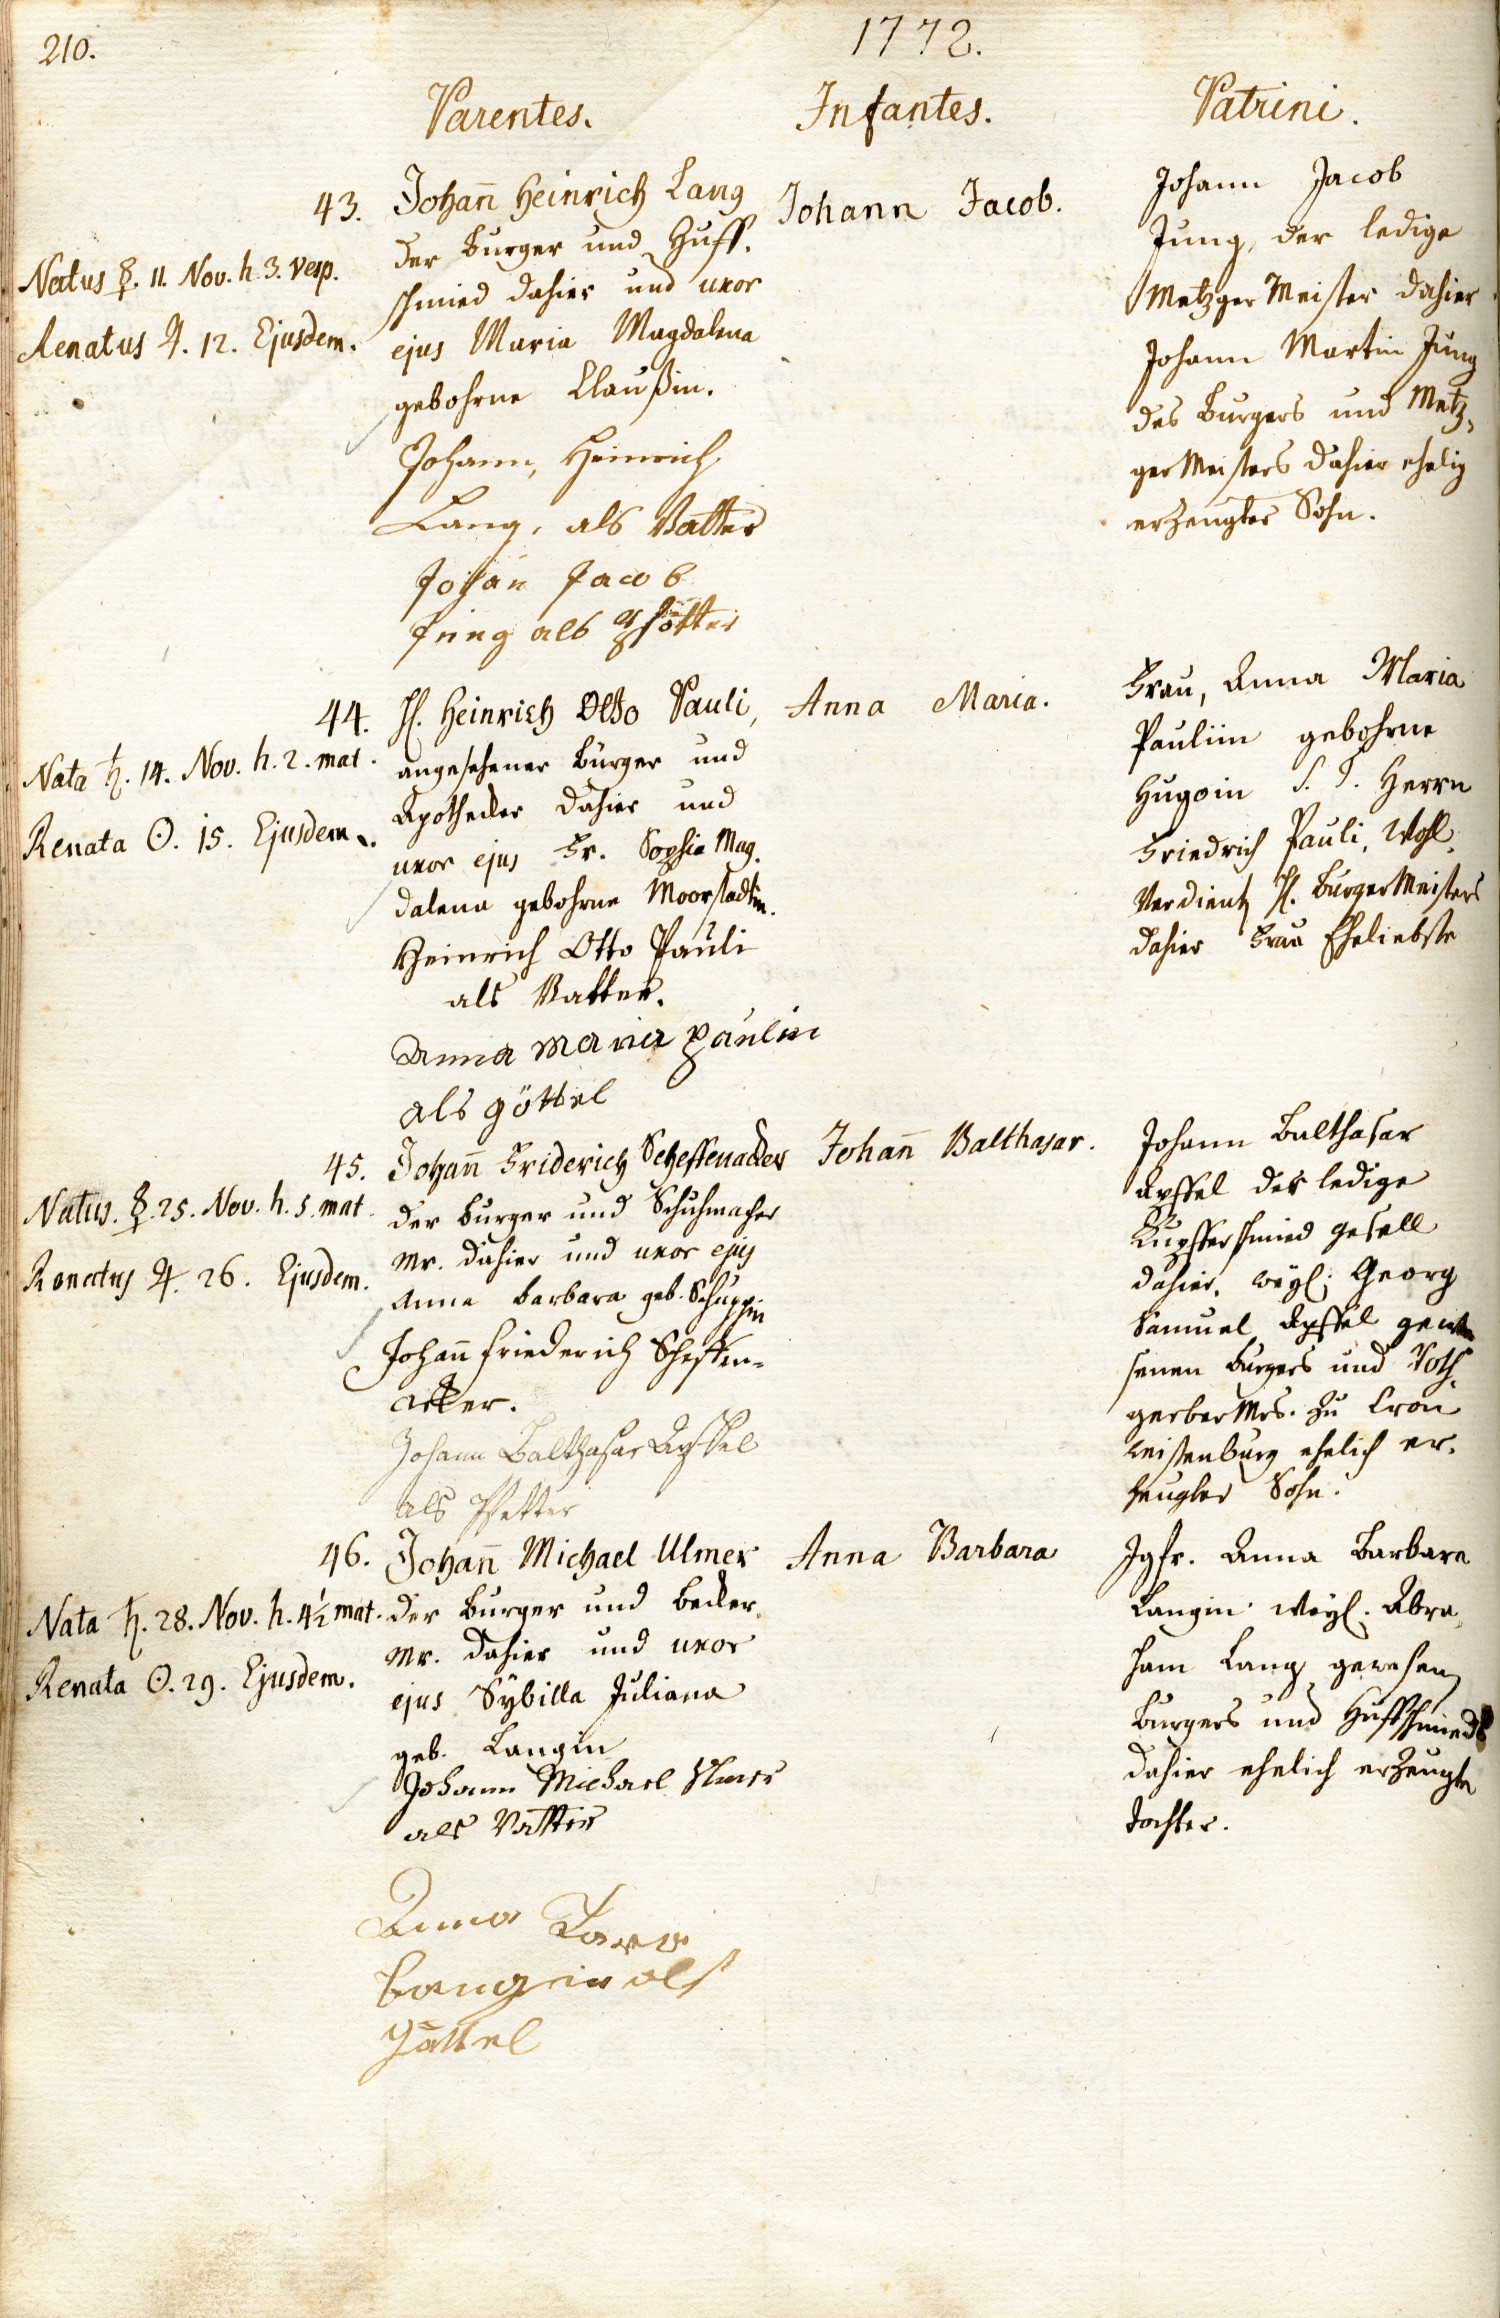 210.
1772.
Parentes.
Infantes.
Patrini.
43.
Natus ☿. 11. Nov. h. 3. vesp.
Renatus ♃. 12. Ejusdem.
Johañ Heinrich Lang
der Burger und Huff-
schmied dahier und uxor
ejus Maria Magdalena
gebohrne Claußin.
Johann Heinrich
Lang, als Vatter
Johan Jacob
Jung als Pfötter
Johann Jacob.
Johann Jacob
Jung, der ledige
Metzger Meister dahier
Johann Martin Jung
des Burgers und Metz-
germeisters dahier ehelig
erzeugter Sohn.
44.
Nata ♄. 14. Nov. h. 2. mat.
Renata ☉. 15. Ejusdem.
H. Heinrich Otto Pauli,
angesehener Burger und
Apothecker dahier und
uxor ejus Fr. Sophia Mag-
dalena gebohrne Moorstadtin.
Heinrich Otto Pauli
als Vatter.
Anna Maria Paulin
als göttel
Anna Maria.
Frau, Anna Maria
Pauliin gebohrne
Hugoin S. T. Herrn
Friedrich Pauli, Wohl-
verdienten H. Burger Meisters
dahier Frau Eheliebste
45.
Natus. ☿. 25. Nov. h. 5. mat.
Renatus ♃. 26. Ejusdem.
Johañ Friderich Scheffenacker
der Burger und Schuhmacher
Mr. dahier und uxor ejus
Anna Barbara geb. Schuppin
Johañ Friederich Scheffen-
acker.
Johann Balthasar Apffel
als Pfetter
Johañ Balthasar.
Johann Balthasar
Apffel der ledige
Kupfferschmied gesell
dahier, weyl. Georg
Samuel Apffel gewe-
senen Burgers und Roth-
gerber Mrs. zu Cron
weissenburg ehelich er-
zeugter Sohn.
46.
Nata ♄. 28. Nov. h. 4½ mat.
Renata ☉. 29. Ejusdem.
Johañ Michael Ulmer
der Burger und Becker
Mr. dahier und uxor
ejus Sÿbilla Juliana
geb. Langin
Johann Michael Ulmer
als Vatter
Anna
Langin als
Göttel
Anna Barbara
Jgfr. Anna Barbara
Langin weyl. Abra-
ham Lang gewesen
Burgers und Huffschmieds
dahier ehelich erzeugte
Tochter.